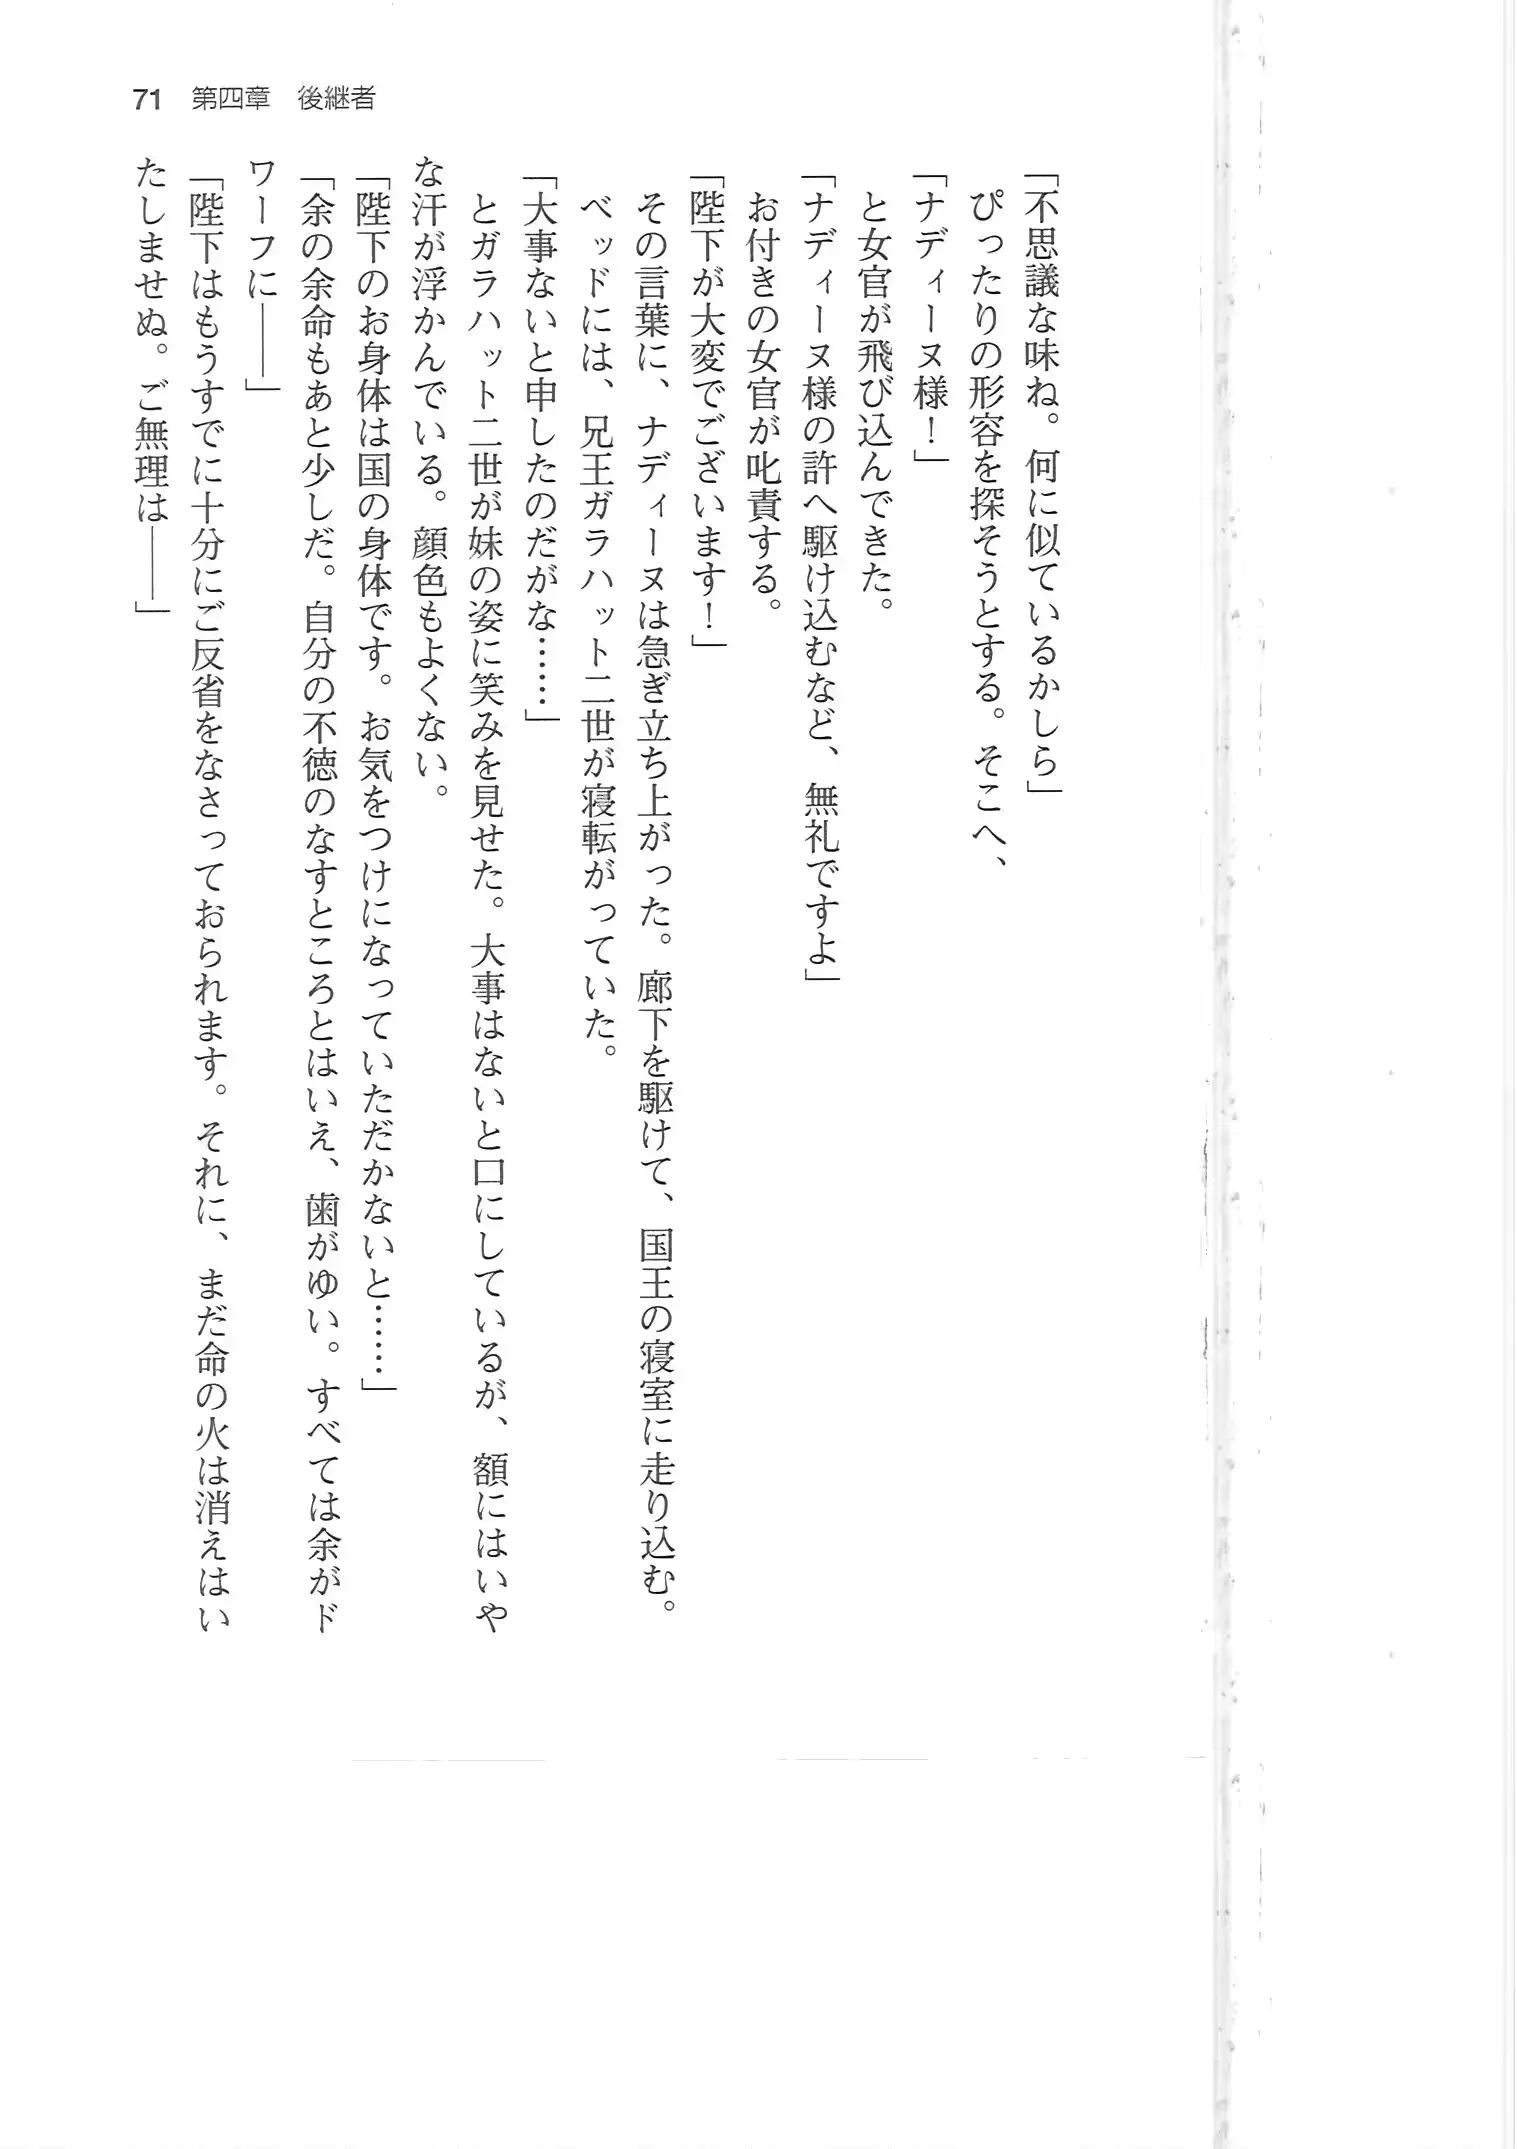 71 第四章 後継者
「不思議な味ね。何に似ているかしら」
ぴったりの形容を探そうとする。そこへ、
「ナディーヌ様！」
と女官が飛び込んできた。
「ナディーヌ様の許へ駆け込むなど、無礼ですよ」
お付きの女官が叱責する。
「陛下が大変でございます！」
その言葉に、ナディーヌは急ぎ立ち上がった。廊下を駆けて、国王の寝室に走り込む。
ベッドには、兄王ガラハット二世が寝転がっていた。
「大事ないと申したのだがな……」
とガラハット二世が妹の姿に笑みを見せた。大事はないと口にしているが、額にはいや
な汗が浮かんでいる。顔色もよくない。
「陛下のお身体は国の身体です。お気をつけになっていただかないと……」
「余の余命もあと少しだ。自分の不徳のなすところとはいえ、歯がゆい。すべては余がド
ワーフに――」
「陛下はもうすでに十分にご反省をなさっておられます。それに、まだ命の火は消えはい
たしませぬ。ご無理は――」